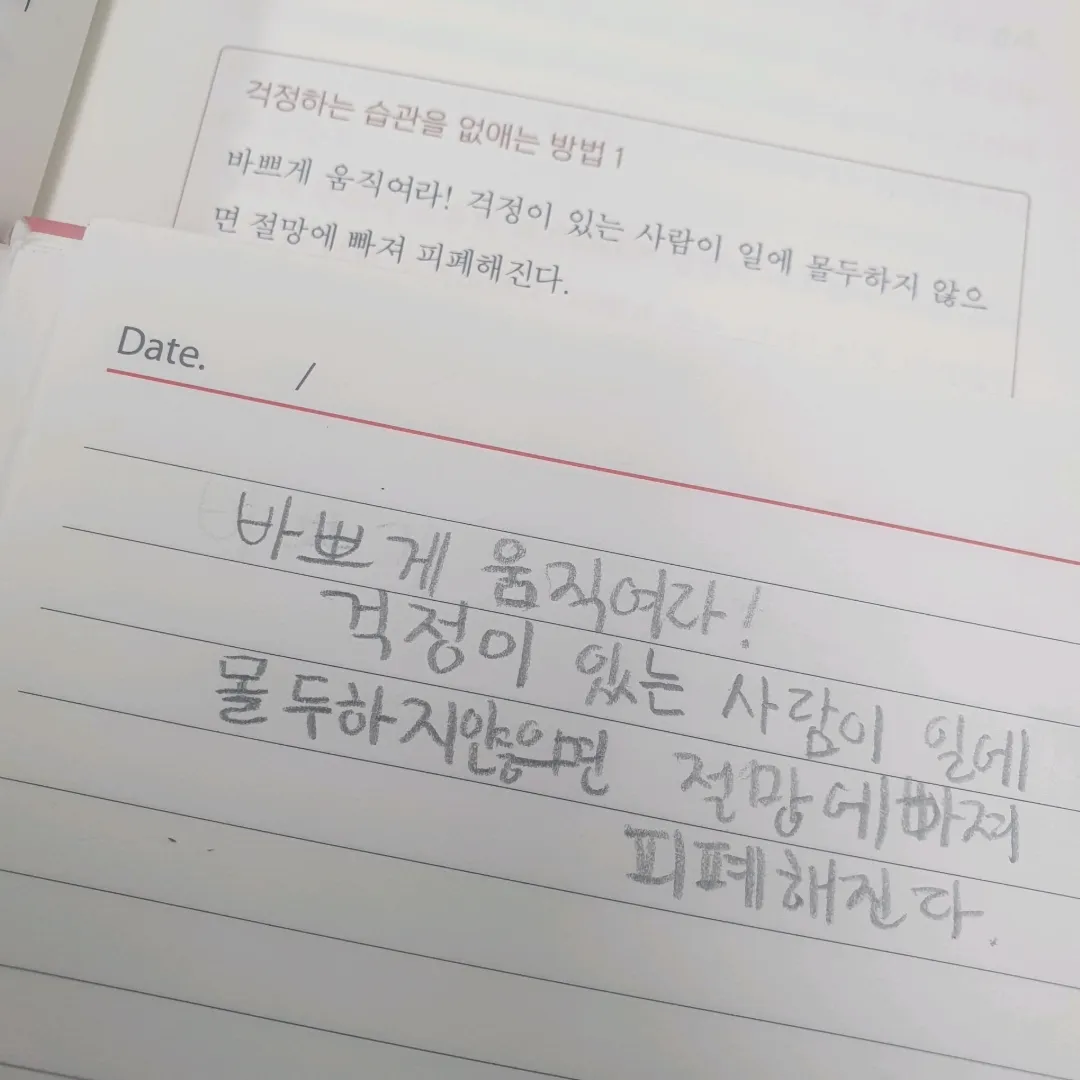 걱정하는 습관을 없애는 방법 1
바쁘게 움직여라! 걱정이 있는 사람이 일에 몰두하지 않으
면 절망에 빠져 피폐해진다.
Date. /
바쁘게 움직여라!
걱정이 있는 사람이 일에
몰두하지않으면 절망에빠져
피폐해진다.